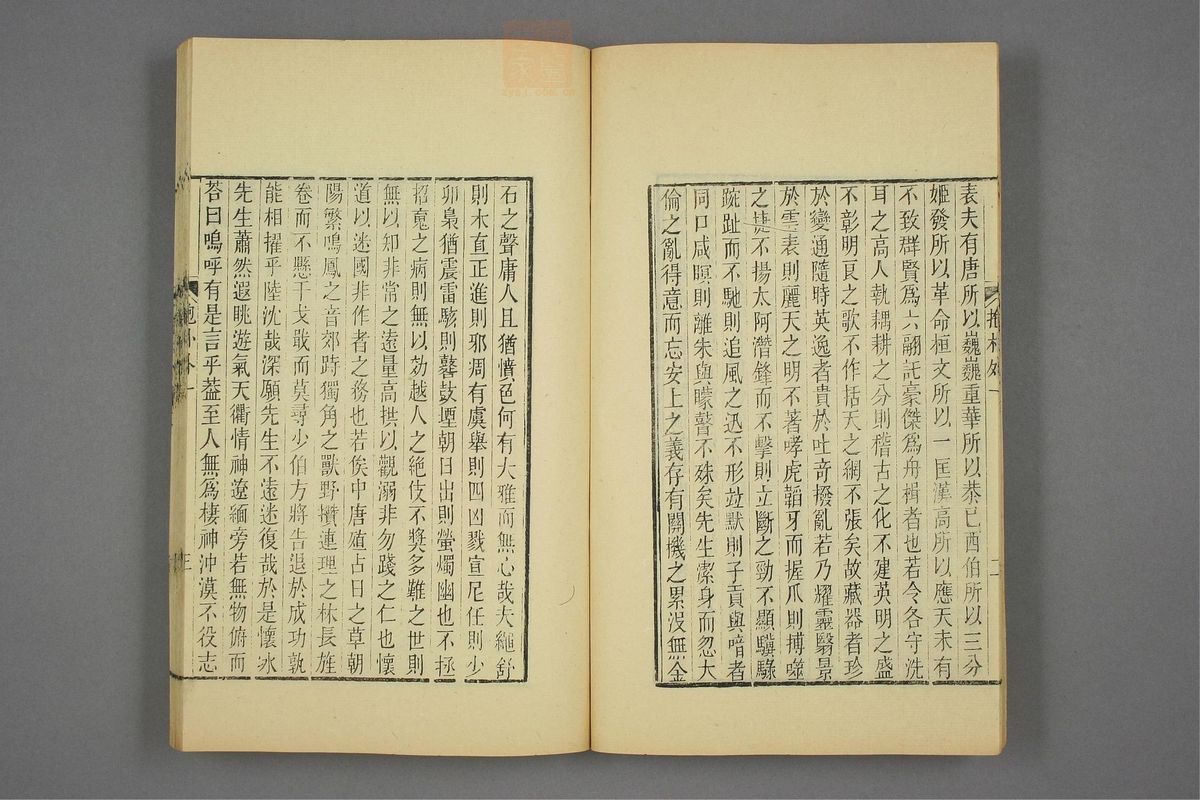 表夫有唐所以巍巍重華所以恭己西伯所以三分
姬發所以革命桓文所以一匡漢高所以應天未有
不致群賢爲六翮託豪傑爲舟楫者也若令各守洗
耳之高人執耦耕之分則稽古之化不建英明之盛
不彰明良之歌不作括天之網不張矣故藏器者珍
於變通隨時英逸者貴於吐奇撥亂若乃耀靈翳景
於雲表則麗天之明不著哮虎韜牙而握爪則搏噬
之捷不揚太阿潛鋒而不擊則立斷之勁不顯驥騄
踠趾而不馳則追風之迅不形竝默則子貢與喑者
同口咸暝則離朱與矇瞽不殊矣先生潔身而忽大
倫之亂得意而忘安上之義存有關機之累沒無金
抱朴外一
二
石之聲庸人且猶憤色何有大雅而無心哉夫繩舒
則木直正進則邪凋有虞舉則四凶戮宣尼任則少
卯梟猶震雷駭則鼛鼓堙朝日出則螢燭幽也不拯
招䰟之病則無以効越人之絶伎不獎多難之世則
無以知非常之遠量高拱以觀溺非勿踐之仁也懷
道以迷國非作者之務也若俟中唐殖占日之草朝
陽繁鳴鳳之音郊跱獨角之獸野攢連理之林長旌
卷而不懸干戈戢而莫尋少伯方將告退於成功孰
能相擢乎陸沈哉深願先生不遠迷復哉於是懷冰
先生蕭然遐眺遊氣天衢情神遼緬旁若無物俯而
荅曰嗚呼有是言乎葢至人無爲棲神沖漠不役志
抱朴外一
三